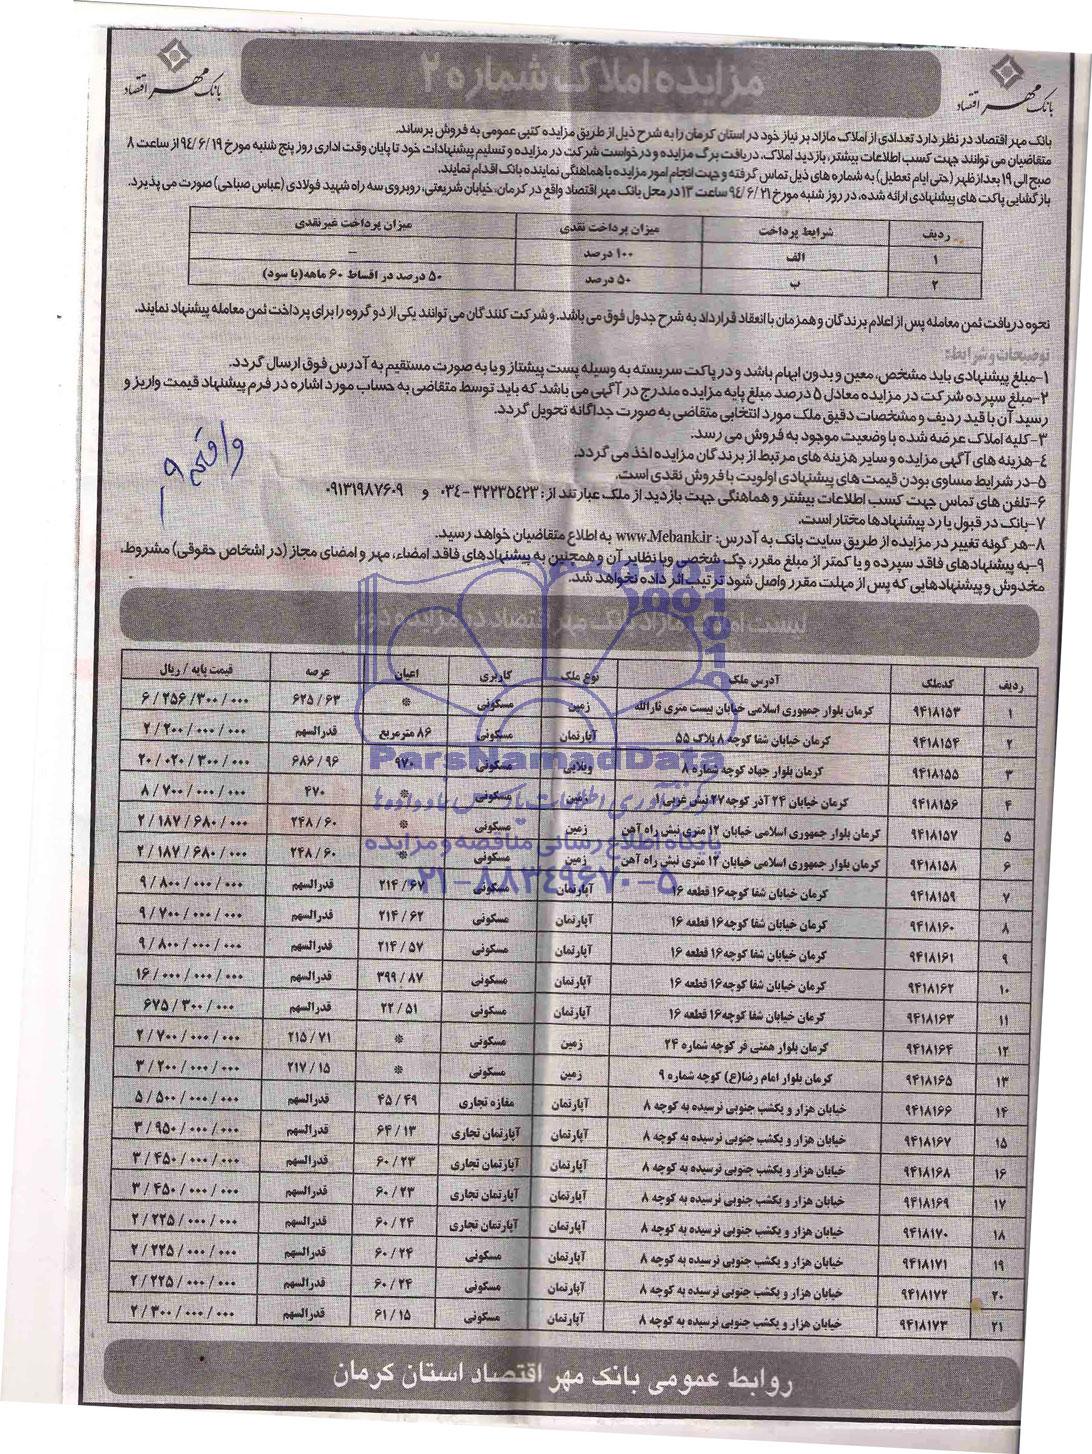 بانک مهر اقتصاد
مزایده املاک شماره ۲
بانک مهر اقتصاد
بانک مهر اقتصاد در نظر دارد تعدادی از املاک مازاد بر نیاز خود در استان کرمان را به شرح ذیل از طریق مزایده کتبی عمومی به فروش برساند.
متقاضیان می توانند جهت کسب اطلاعات بیشتر، بازدید املاک، دریافت برگ مزایده و درخواست شرکت در مزایده و تسلیم پیشنهادات خود تا پایان وقت اداری روز پنج شنبه مورخ ۹۴/۶/۱۹ از ساعت ۸
صبح الی ۱۹ بعدازظهر (حتی ایام تعطیل) به شماره های ذیل تماس گرفته و جهت انجام امور مزایده با هماهنگی نماینده بانک اقدام نمایند.
بازگشایی پاکت های پیشنهادی ارائه شده، در روز شنبه مورخ ۹۴/۶/۲۱ ساعت ۱۳ در محل بانک مهر اقتصاد واقع در کرمان، خیابان شریعتی، روبروی سه راه شهید فولادی (عباس صباحی) صورت می پذیرد.
ردیف شرایط پرداخت میزان پرداخت نقدی میزان پرداخت غیرنقدی
۱ الف ۱۰۰ درصد –
۲ ب ۵۰ درصد ۵۰ درصد در اقساط ۶۰ ماهه(با سود)
نحوه دریافت ثمن معامله پس از اعلام برندگان و همزمان با انعقاد قرارداد به شرح جدول فوق می باشد. و شرکت کنندگان می توانند یکی از دو گروه را برای پرداخت ثمن معامله پیشنهاد نمایند.
توضیحات و شرایط:
۱-مبلغ پیشنهادی باید مشخص، معین و بدون ابهام باشد و در پاکت سربسته به وسیله پست پیشتاز و یا به صورت مستقیم به آدرس فوق ارسال گردد.
۲-مبلغ سپرده شرکت در مزایده معادل ۵ درصد مبلغ پایه مزایده مندرج در آگهی می باشد که باید توسط متقاضی به حساب مورد اشاره در فرم پیشنهاد قیمت واریز و
رسید آن با قید ردیف و مشخصات دقیق ملک مورد انتخابی متقاضی به صورت جداگانه تحویل گردد.
۳-کلیه املاک عرضه شده با وضعیت موجود به فروش می رسد.
۴-هزینه های آگهی مزایده و سایر هزینه های مرتبط از برندگان مزایده اخذ می گردد.
۵-در شرایط مساوی بودن قیمت های پیشنهادی اولویت با فروش نقدی است.
۶-تلفن های تماس جهت کسب اطلاعات بیشتر و هماهنگی جهت بازدید از ملک عبارتند از: ۳۲۲۳۵۴۲۳-۰۳۴ و ۰۹۱۳۱۹۸۷۶۰۹
۷-بانک در قبول یا رد پیشنهادها مختار است.
۸-هر گونه تغییر در مزایده از طریق سایت بانک به آدرس: www.Mebank.ir به اطلاع متقاضیان خواهد رسید.
۹-به پیشنهادهای فاقد سپرده و یا کمتر از مبلغ مقرر، چک شخصی ویا نظایر آن و همچنین به پیشنهادهای فاقد امضاء، مهر و امضای مجاز (در اشخاص حقوقی) مشروط،
مخدوش و پیشنهادهایی که پس از مهلت مقرر واصل شود ترتیب اثر داده نخواهد شد.
لیست املاک مازاد بانک مهر اقتصاد در مزایده
ردیف کدملک آدرس ملک نوع ملک کاربری اعیان عرصه قیمت پایه / ریال
۱ ۹۴۱۸۱۵۳ کرمان بلوار جمهوری اسلامی خیابان بیست متری ثارالله زمین مسکونی * ۶۲۵/۶۳ ۶/۲۵۶/۳۰۰/۰۰۰
۲ ۹۴۱۸۱۵۴ کرمان خیابان شفا کوچه ۸ پلاک ۵۵ آپارتمان مسکونی ۸۶ مترمربع قدرالسهم ۲/۲۰۰/۰۰۰/۰۰۰
۳ ۹۴۱۸۱۵۵ کرمان بلوار جهاد کوچه شماره ۸ ویلایی مسکونی ۹۷۰ ۶۸۶/۹۶ ۲۰/۰۲۰/۳۰۰/۰۰۰
۴ ۹۴۱۸۱۵۶ کرمان خیابان ۲۴ آذر کوچه ۲۷ نبش غربی ۱ زمین مسکونی * ۴۷۰ ۸/۷۰۰/۰۰۰/۰۰۰
۵ ۹۴۱۸۱۵۷ کرمان بلوار جمهوری اسلامی خیابان ۱۲ متری نبش راه آهن زمین مسکونی * ۲۴۸/۶۰ ۲/۱۸۷/۶۸۰/۰۰۰
۶ ۹۴۱۸۱۵۸ کرمان بلوار جمهوری اسلامی خیابان ۱۲ متری نبش راه آهن زمین مسکونی * ۲۴۸/۶۰ ۲/۱۸۷/۶۸۰/۰۰۰
۷ ۹۴۱۸۱۵۹ کرمان خیابان شفا کوچه۱۶ قطعه ۱۶ آپارتمان مسکونی ۲۱۴/۶۷ قدرالسهم ۹/۸۰۰/۰۰۰/۰۰۰
۸ ۹۴۱۸۱۶۰ کرمان خیابان شفا کوچه۱۶ قطعه ۱۶ آپارتمان مسکونی ۲۱۴/۶۲ قدرالسهم ۹/۷۰۰/۰۰۰/۰۰۰
۹ ۹۴۱۸۱۶۱ کرمان خیابان شفا کوچه۱۶ قطعه ۱۶ آپارتمان مسکونی ۲۱۴/۵۷ قدرالسهم ۹/۸۰۰/۰۰۰/۰۰۰
۱۰ ۹۴۱۸۱۶۲ کرمان خیابان شفا کوچه۱۶ قطعه ۱۶ آپارتمان مسکونی ۳۹۹/۸۷ قدرالسهم ۱۶/۰۰۰/۰۰۰/۰۰۰
۱۱ ۹۴۱۸۱۶۳ کرمان خیابان شفا کوچه۱۶ قطعه ۱۶ آپارتمان مسکونی ۲۲/۵۱ قدرالسهم ۶۷۵/۳۰۰/۰۰۰
۱۲ ۹۴۱۸۱۶۴ کرمان بلوار همتی فر کوچه شماره ۲۴ زمین مسکونی * ۲۱۵/۷۱ ۲/۷۰۰/۰۰۰/۰۰۰
۱۳ ۹۴۱۸۱۶۵ کرمان بلوار امام رضا(ع) کوچه شماره ۹ زمین مسکونی * ۲۱۷/۱۵ ۳/۲۰۰/۰۰۰/۰۰۰
۱۴ ۹۴۱۸۱۶۶ خیابان هزار و یکشب جنوبی نرسیده به کوچه ۸ آپارتمان مغازه تجاری ۴۵/۴۹ قدرالسهم ۵/۵۰۰/۰۰۰/۰۰۰
۱۵ ۹۴۱۸۱۶۷ خیابان هزار و یکشب جنوبی نرسیده به کوچه ۸ آپارتمان آپارتمان تجاری ۶۴/۱۳ قدرالسهم ۳/۹۵۰/۰۰۰/۰۰۰
۱۶ ۹۴۱۸۱۶۸ خیابان هزار و یکشب جنوبی نرسیده به کوچه ۸ آپارتمان آپارتمان تجاری ۶۰/۲۳ قدرالسهم ۳/۴۵۰/۰۰۰/۰۰۰
۱۷ ۹۴۱۸۱۶۹ خیابان هزار و یکشب جنوبی نرسیده به کوچه ۸ آپارتمان آپارتمان تجاری ۶۰/۲۳ قدرالسهم ۳/۴۵۰/۰۰۰/۰۰۰
۱۸ ۹۴۱۸۱۷۰ خیابان هزار و یکشب جنوبی نرسیده به کوچه ۸ آپارتمان آپارتمان تجاری ۶۰/۲۴ قدرالسهم ۲/۲۲۵/۰۰۰/۰۰۰
۱۹ ۹۴۱۸۱۷۱ خیابان هزار و یکشب جنوبی نرسیده به کوچه ۸ آپارتمان مسکونی ۶۰/۲۴ قدرالسهم ۲/۲۲۵/۰۰۰/۰۰۰
۲۰ ۹۴۱۸۱۷۲ خیابان هزار و یکشب جنوبی نرسیده به کوچه ۸ آپارتمان مسکونی ۶۰/۲۴ قدرالسهم ۲/۲۲۵/۰۰۰/۰۰۰
۲۱ ۹۴۱۸۱۷۳ خیابان هزار و یکشب جنوبی نرسیده به کوچه ۸ آپارتمان مسکونی ۶۱/۱۵ قدرالسهم ۲/۳۰۰/۰۰۰/۰۰۰
ParsNamadData
پایگاه اطلاع رسانی مناقصه و مزایده
۰۲۱-۸۸۳۴۹۶۷۰-۵
روابط عمومی بانک مهر اقتصاد استان کرمان